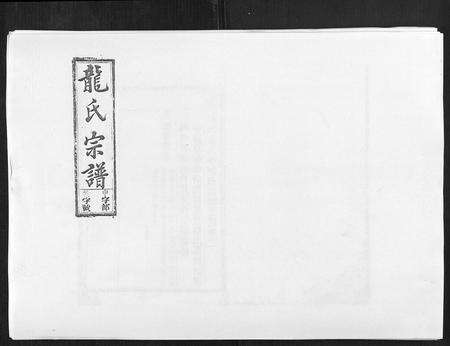 龍氏宗譜
字部
字號